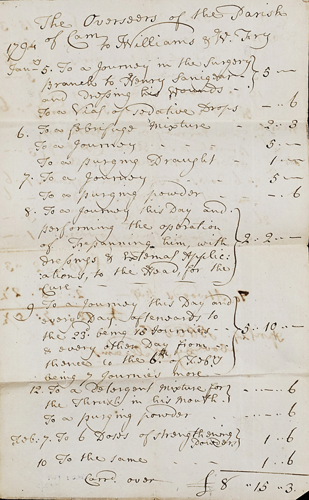 The Overseers of the Parish
of Cam to Williams & Wm Fry
1794
Janry 5. To a Journey in the Surgery
Branch to Henry
and Dressing his Wounds - 5 -
To a Vial of Sedative Drops - 6
6. To a Febrifuge Mixture - 2 - 3
To a Journey - 5 -
To a purging Draught - 1 -
7. To a Journey - 5 -
To a purging powder - 6
8. To a Journey this Day and
performing the operation
of Trepanning him, with
Dressings & External Applic-
ations, to the Head, for the
Cure - 2 - 2 -
9. To a Journey this Day and
every Day afterwards to
the 23d. being 15 Journeys
& every other Day from
thence to the 6th of Feby
being 7 Journies more - 5 - 10 -
12. To a Detergent Mixture for
the Thrush in his Mouth - 6
To a purging powder - 6
Feb: 7. To 6 Doses of Strengthening
powders 1 - 6
10 To the same 1 - 6
Carrd over £ 8 " 15 " 3